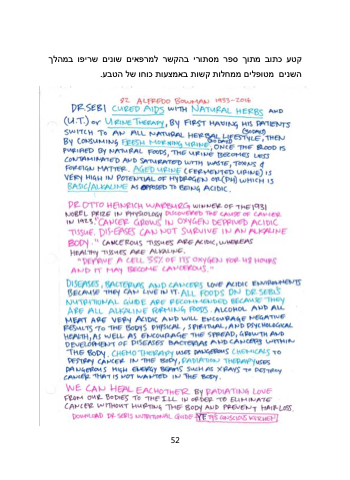 קטע כתוב מתוך ספר מסתורי בהקשר למרפאים שונים שריפו במהלך
השנים מטופלים ממחלות קשות באמצעות כוחו של הטבע.
ALFREDO BOWMAN 1933-2016
DR.SEBI CURED AIDS WITH NATURAL HERBS AND
(U.T.) or URINE THERAPY, BY FIRST HAVING HIS PATIENTS
SWITCH TO AN ALL NATURAL HERBAL LIFESTYLE, THEN
BY CONSUMING FRESH MORNING URINE, ONCE THE BLOOD IS
PURIFIED BY NATURAL FOODS, THE URINE BECOMES LESS
CONTAMINATED AND SATURATED WITH WASTE, TOXINS &
FOREIGN MATTER. AGED URINE (FERMENTED URINE) IS
VERY HIGH IN POTENTIAL OF HYDROGEN OR (PH) WHICH IS
BASIC/ALKALINE AS OPPOSED TO BEING ACIDIC.
DR OTTO HEINRICH WARBURG WINNER OF THE 1931
NOBEL PRIZE IN PHYSIOLOGY DISCOVERED THE CAUSE OF CANCER
IN 1923. "CANCER GROWS IN OXYGEN DEPRIVED ACIDIC
TISSUE. DIS-EASES CAN NOT SURVIVE IN AN ALKALINE
BODY." CANCEROUS TISSUES ARE ACIDIC, WHEREAS
HEALTHY TISSUES ARE ALKALINE.
"DEPRIVE A CELL 35% OF ITS OXYGEN FOR 48 HOURS
AND IT MAY BECOME CANCEROUS."
DISEASES, BACTERIAS AND CANCERS LOVE ACIDIC ENVIRONMENTS
BECAUSE THEY CAN LIVE IN IT. ALL FOODS ON DR SEBI'S
NUTRITIONAL GUIDE ARE RECOMMENDED BECAUSE THEY
ARE ALL ALKALINE FORMING FOODS. ALCOHOL AND ALL
MEAT ARE VERY ACIDIC AND WILL ENCOURAGE NEGATIVE
RESULTS TO THE BODYS PHYSICAL, SPIRITUAL, AND PSYCHOLOGICAL
HEALTH, AS WELL AS ENCOURAGE THE SPREAD, GROWTH AND
DEVELOPMENT OF DISEASES BACTERIAS AND CANCERS WITHIN
THE BODY. CHEMOTHERAPY USES DANGEROUS CHEMICALS TO
DESTROY CANCER IN THE BODY, RADIATION THERAPY USES
DANGEROUS HIGH ENERGY BEAMS SUCH AS XRAYS TO DESTROY
CANCER THAT IS NOT WANTED IN THE BODY.
WE CAN HEAL EACHOTHER BY RADIATING LOVE
FROM OUR BODIES TO THE ILL IN ORDER TO ELIMINATE
CANCER WITHOUT HURTING THE BODY AND PREVENT HAIR LOSS.
DOWNLOAD DR SEBIS NUTRITIONAL GUIDE CONSCIOUS KITCHEN
52